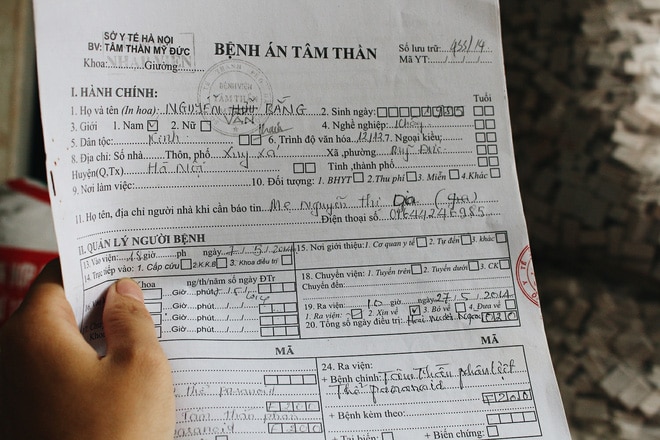 SỞ Y TẾ HÀ NỘI
BV: TÂM THẦN MỸ ĐỨC
Khoa:......Giường:
BỆNH ÁN TÂM THẦN
Số lưu trữ: 955/14
Mã YT:
BỆNH VIỆN
TÂM THẦN
I. HÀNH CHÍNH:
Tuổi
1. Họ và tên (In hoa): NGUYỄN HỮU BẰNG 2. Sinh ngày:
3. Giới 1. Nam 2. Nữ 4. Nghề nghiệp:
5. Dân tộc: Kinh 6. Trình độ văn hóa: 12/12 7. Ngoại kiều:
8. Địa chỉ: Số nhà Thôn, phố: Xuy xá Xã ,phường: Mỹ Đức
Huyện(Q,Tx) Hà Nội Tỉnh,thành phố:
9. Nơi làm việc: 10. Đối tượng: 1. BHYT 2.Thu phí 3. Miễn 4. Khác
11. Họ tên, địa chỉ người nhà khi cần báo tin: Mẹ Nguyễn Thị
Điện thoại số:
II. QUẢN LÝ NGƯỜI BỆNH
13. Vào viện: giờ ph ngày 5
14. Trực tiếp vào: 1. Cấp cứu 2.K.K.B 3. Khoa điều trị
15. Nơi giới thiệu: 1. Cơ quan y tế 2. Tự đến 3. khác
Khoa ng/th/năm số ngày ĐTr
Giờ...phút
Giờ...phút
Giờ...phút
18. Chuyển viện: 1. Tuyến trên 2. Tuyến dưới 3. CK
Chuyển đến:
19. Ra viện: 10 giờ ngày 27/5/2014
1. Ra viện: 2. Xin về 3. Bỏ về 4. Đưa về
20. Tổng số ngày điều trị: Hai mươi ngày 020
MÃ
MÃ
thể paranoid
F200
Tâm thần phân
paranoid F200
24. Ra viện:
+ Bệnh chính: Tâm thần phân liệt
Thể paranoid
F200
+ Bệnh kèm theo:
+ Tai biến: + Biến chứng: